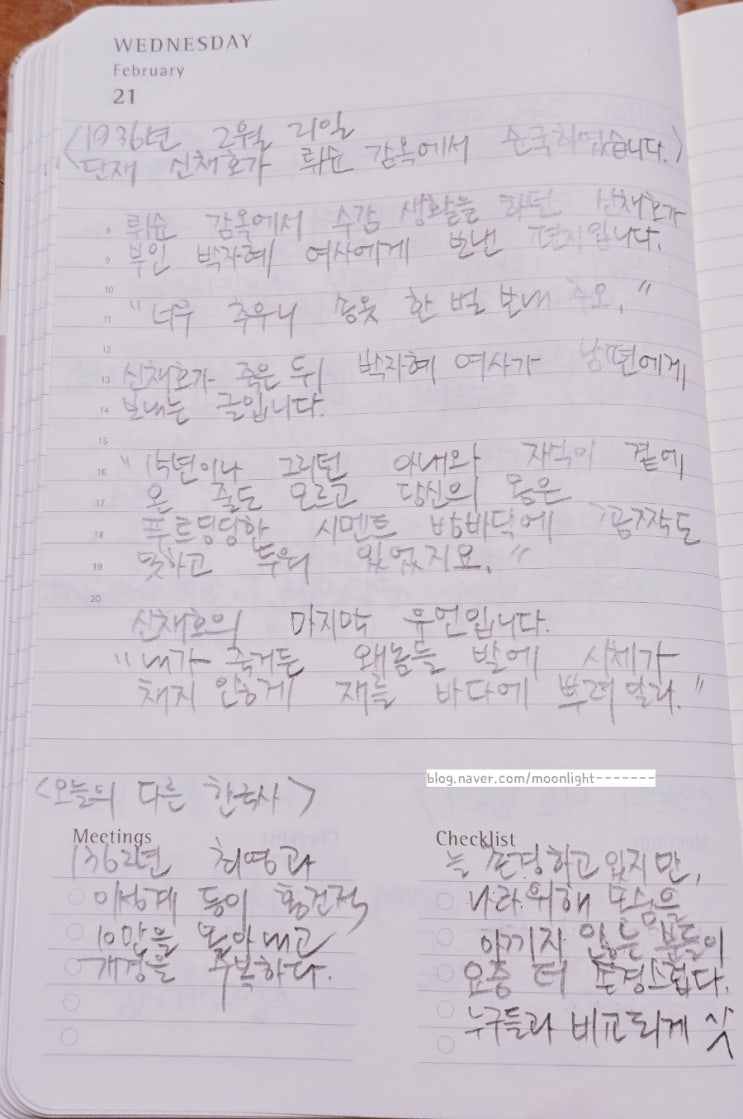 WEDNESDAY
February
21
<1936년 2월 21일
단재 신채호가 뤼순 감옥에서 순국하였습니다.>
8 뤼순 감옥에서 수감 생활을 하던 신채호가
9 부인 박자혜 여사에게 보낸 편지입니다.
10
11 "너무 추우니 솜옷 한 벌 보내 주오."
12
13 신채호가 죽은 뒤 박자혜 여사가 남편에게
14 보내는 글입니다.
15
16 "15년이나 그리던 아내와 자식이 곁에
17 온 줄도 모르고 당신의 몸은
18 푸르딩딩한 시멘트 방바닥에 꼼짝도
19 못하고 누워 있었지요."
20
신채호의 마지막 유언입니다.
"내가 죽거든 왜놈들 발에 시체가
채지 않게 재를 바다에 뿌려달라."
blog.naver.com/moonlight-------
<오늘의 다른 한국사>
Meetings
1362년 최영과
이성계 등이 홍건적
10만을 몰아내고
개경을 수복하다.
Checklist
늘 존경하고 있지만,
나라 위해 목숨을
아끼지 않는 분들이
요즘 더 존경스럽다.
누구들과 비교되게